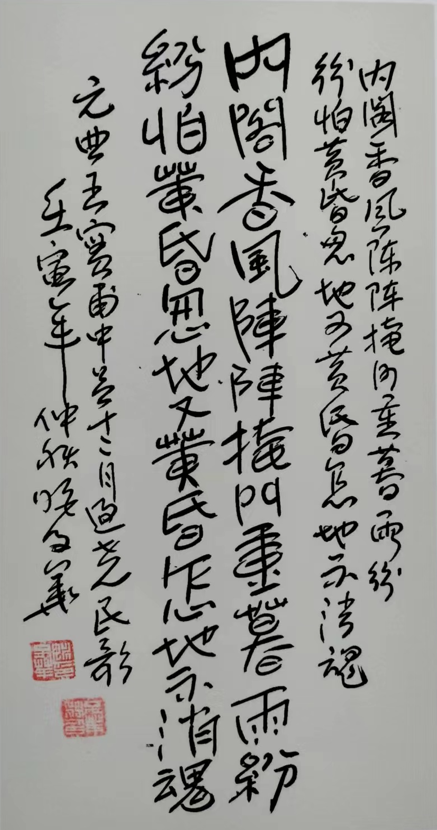 内阁香风阵阵掩门重暮雨纷
纷怕黄昏忽地又黄昏怎地不消魂
内阁香風陣陣掩門重暮雨紛
紛怕黄昏忽地又黄昏怎地不消魂
元曲王實甫中吕十二月過尧民歌
壬寅年仲秋